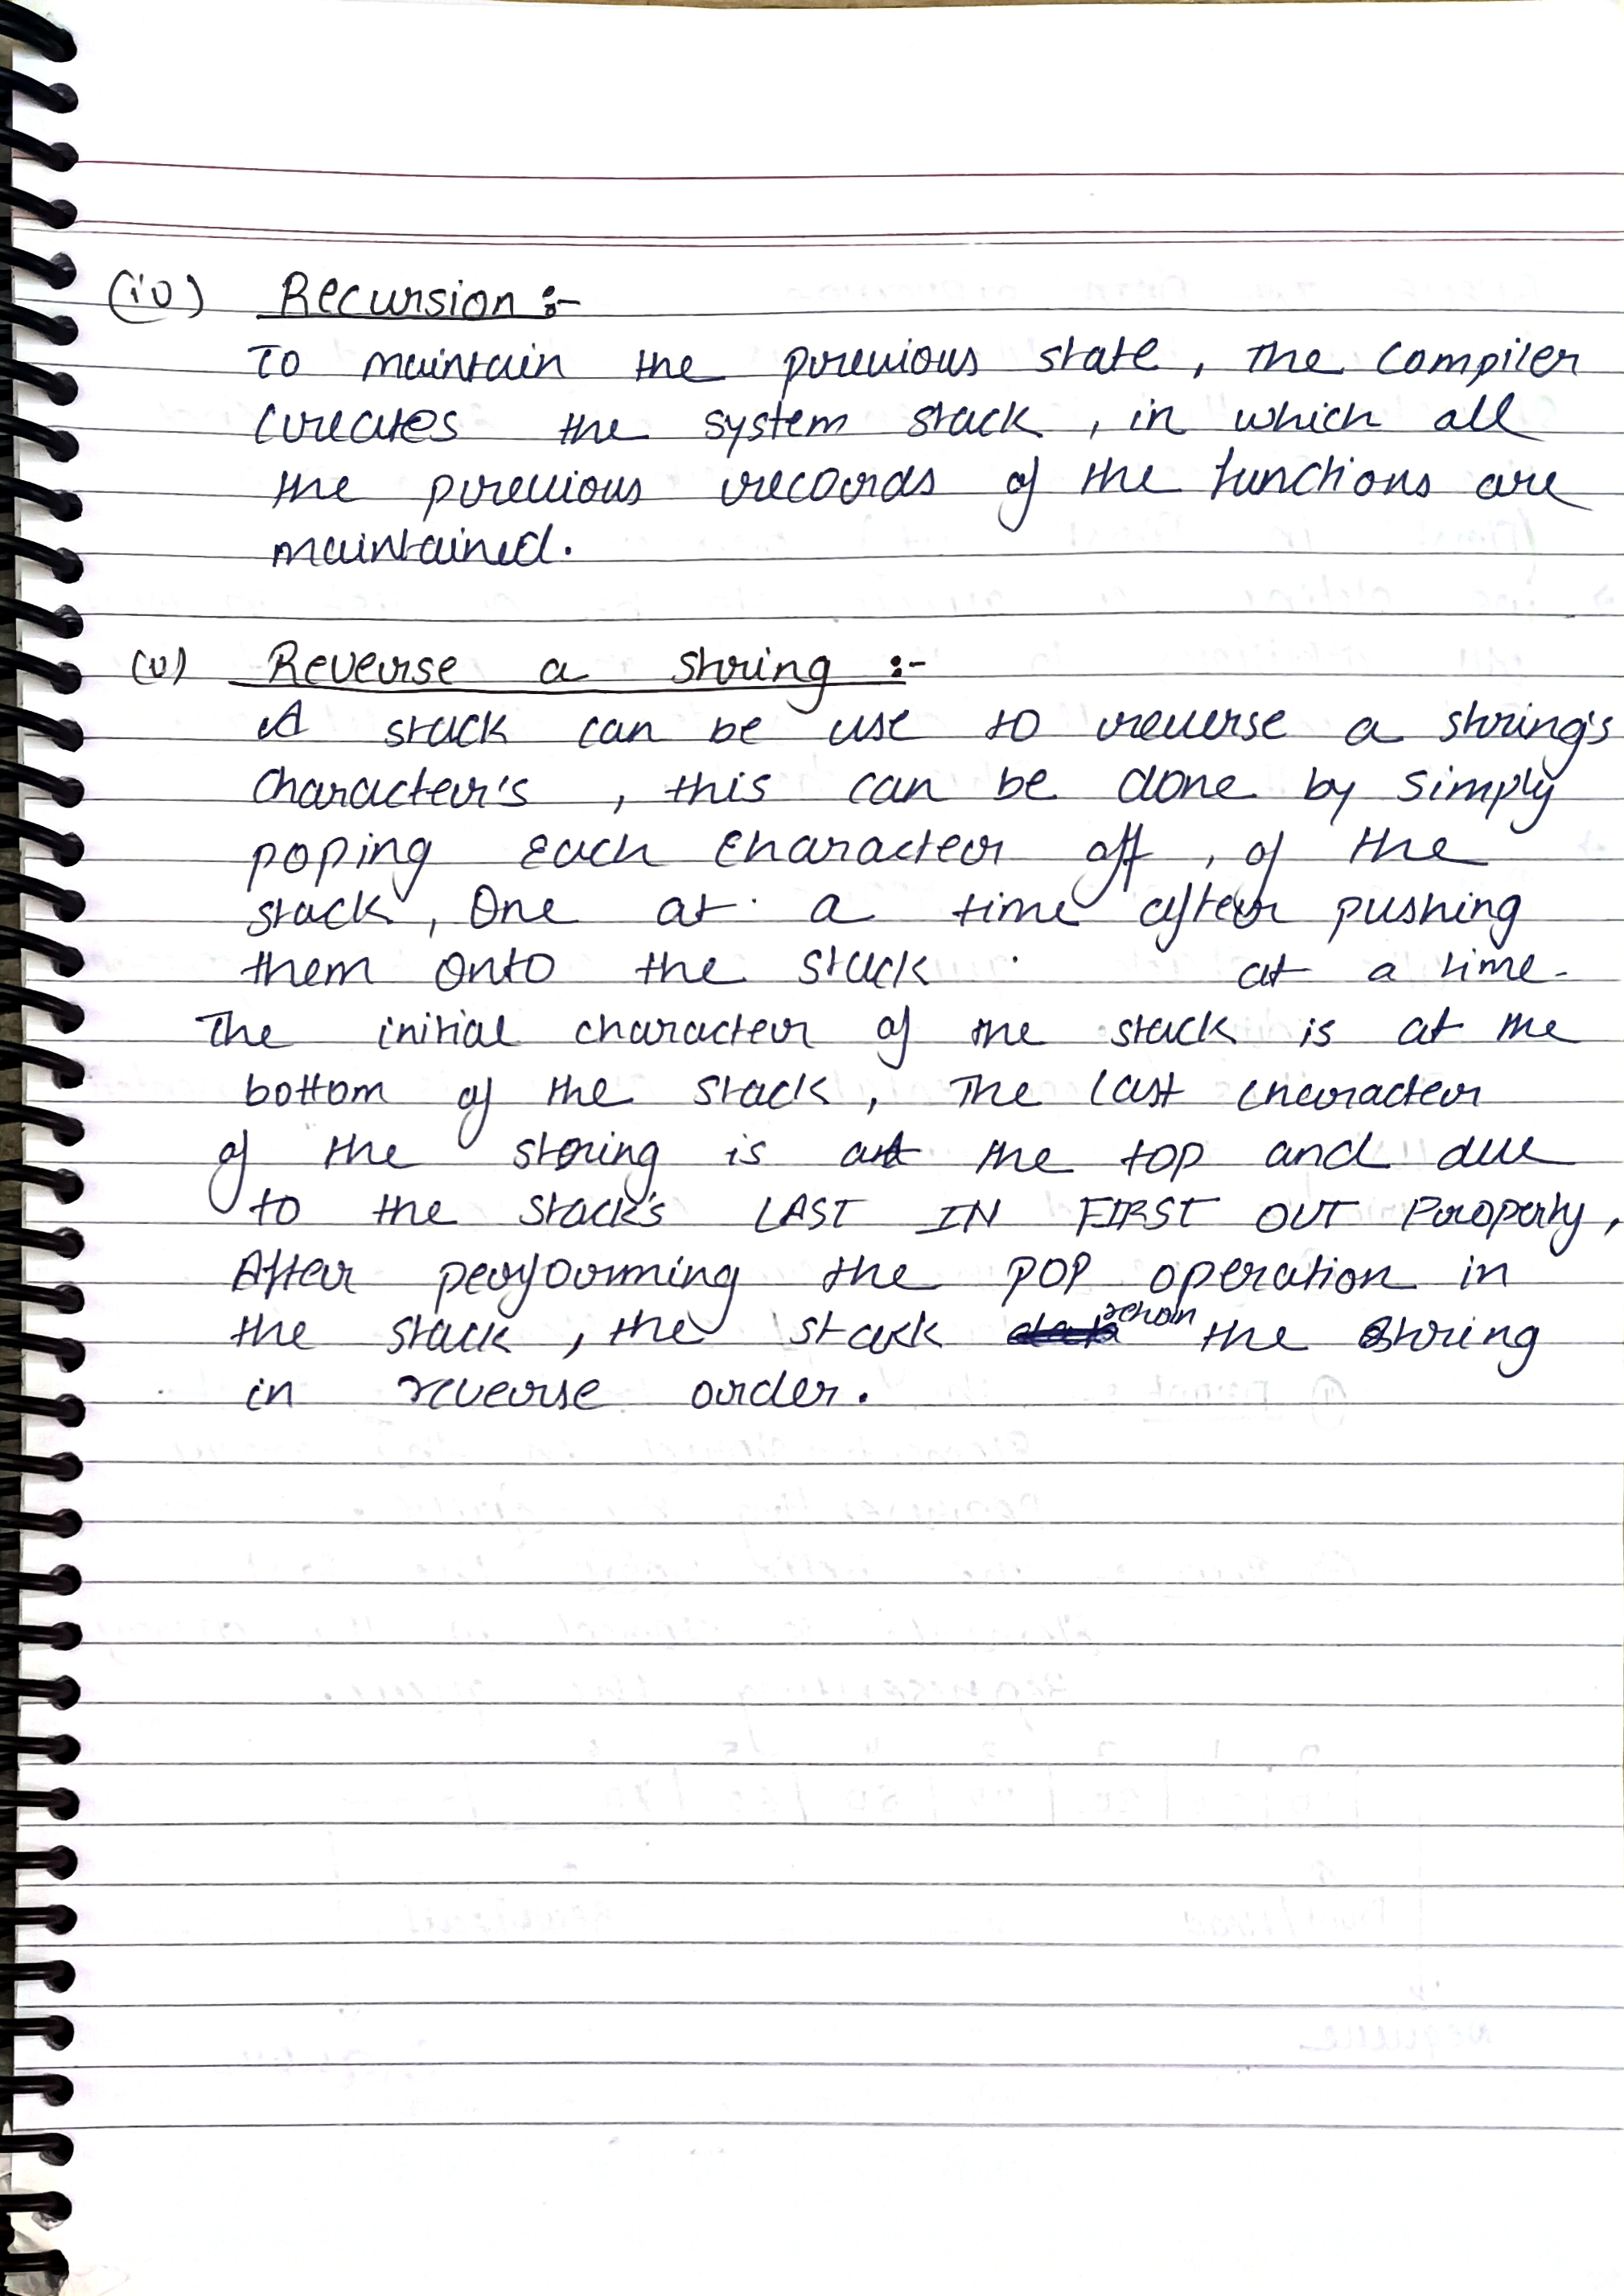 (iv) Recursion :-
To maintain the previous state, The compiler
creates the system stack, in which all
the previous records of the functions are
maintained.
(v) Reverse a string :-
A stack can be use to reverse a string's
character's, this can be done by simply
poping each character off, of the
stack, One at a time after pushing
them onto the stack at a time.
The initial character of the stack is at the
bottom of the stack, The last character
of the string is at the top and due
to the stack's LAST IN FIRST OUT Property,
After performing the POP operation in
the stack, the stack the string
in reverse order.